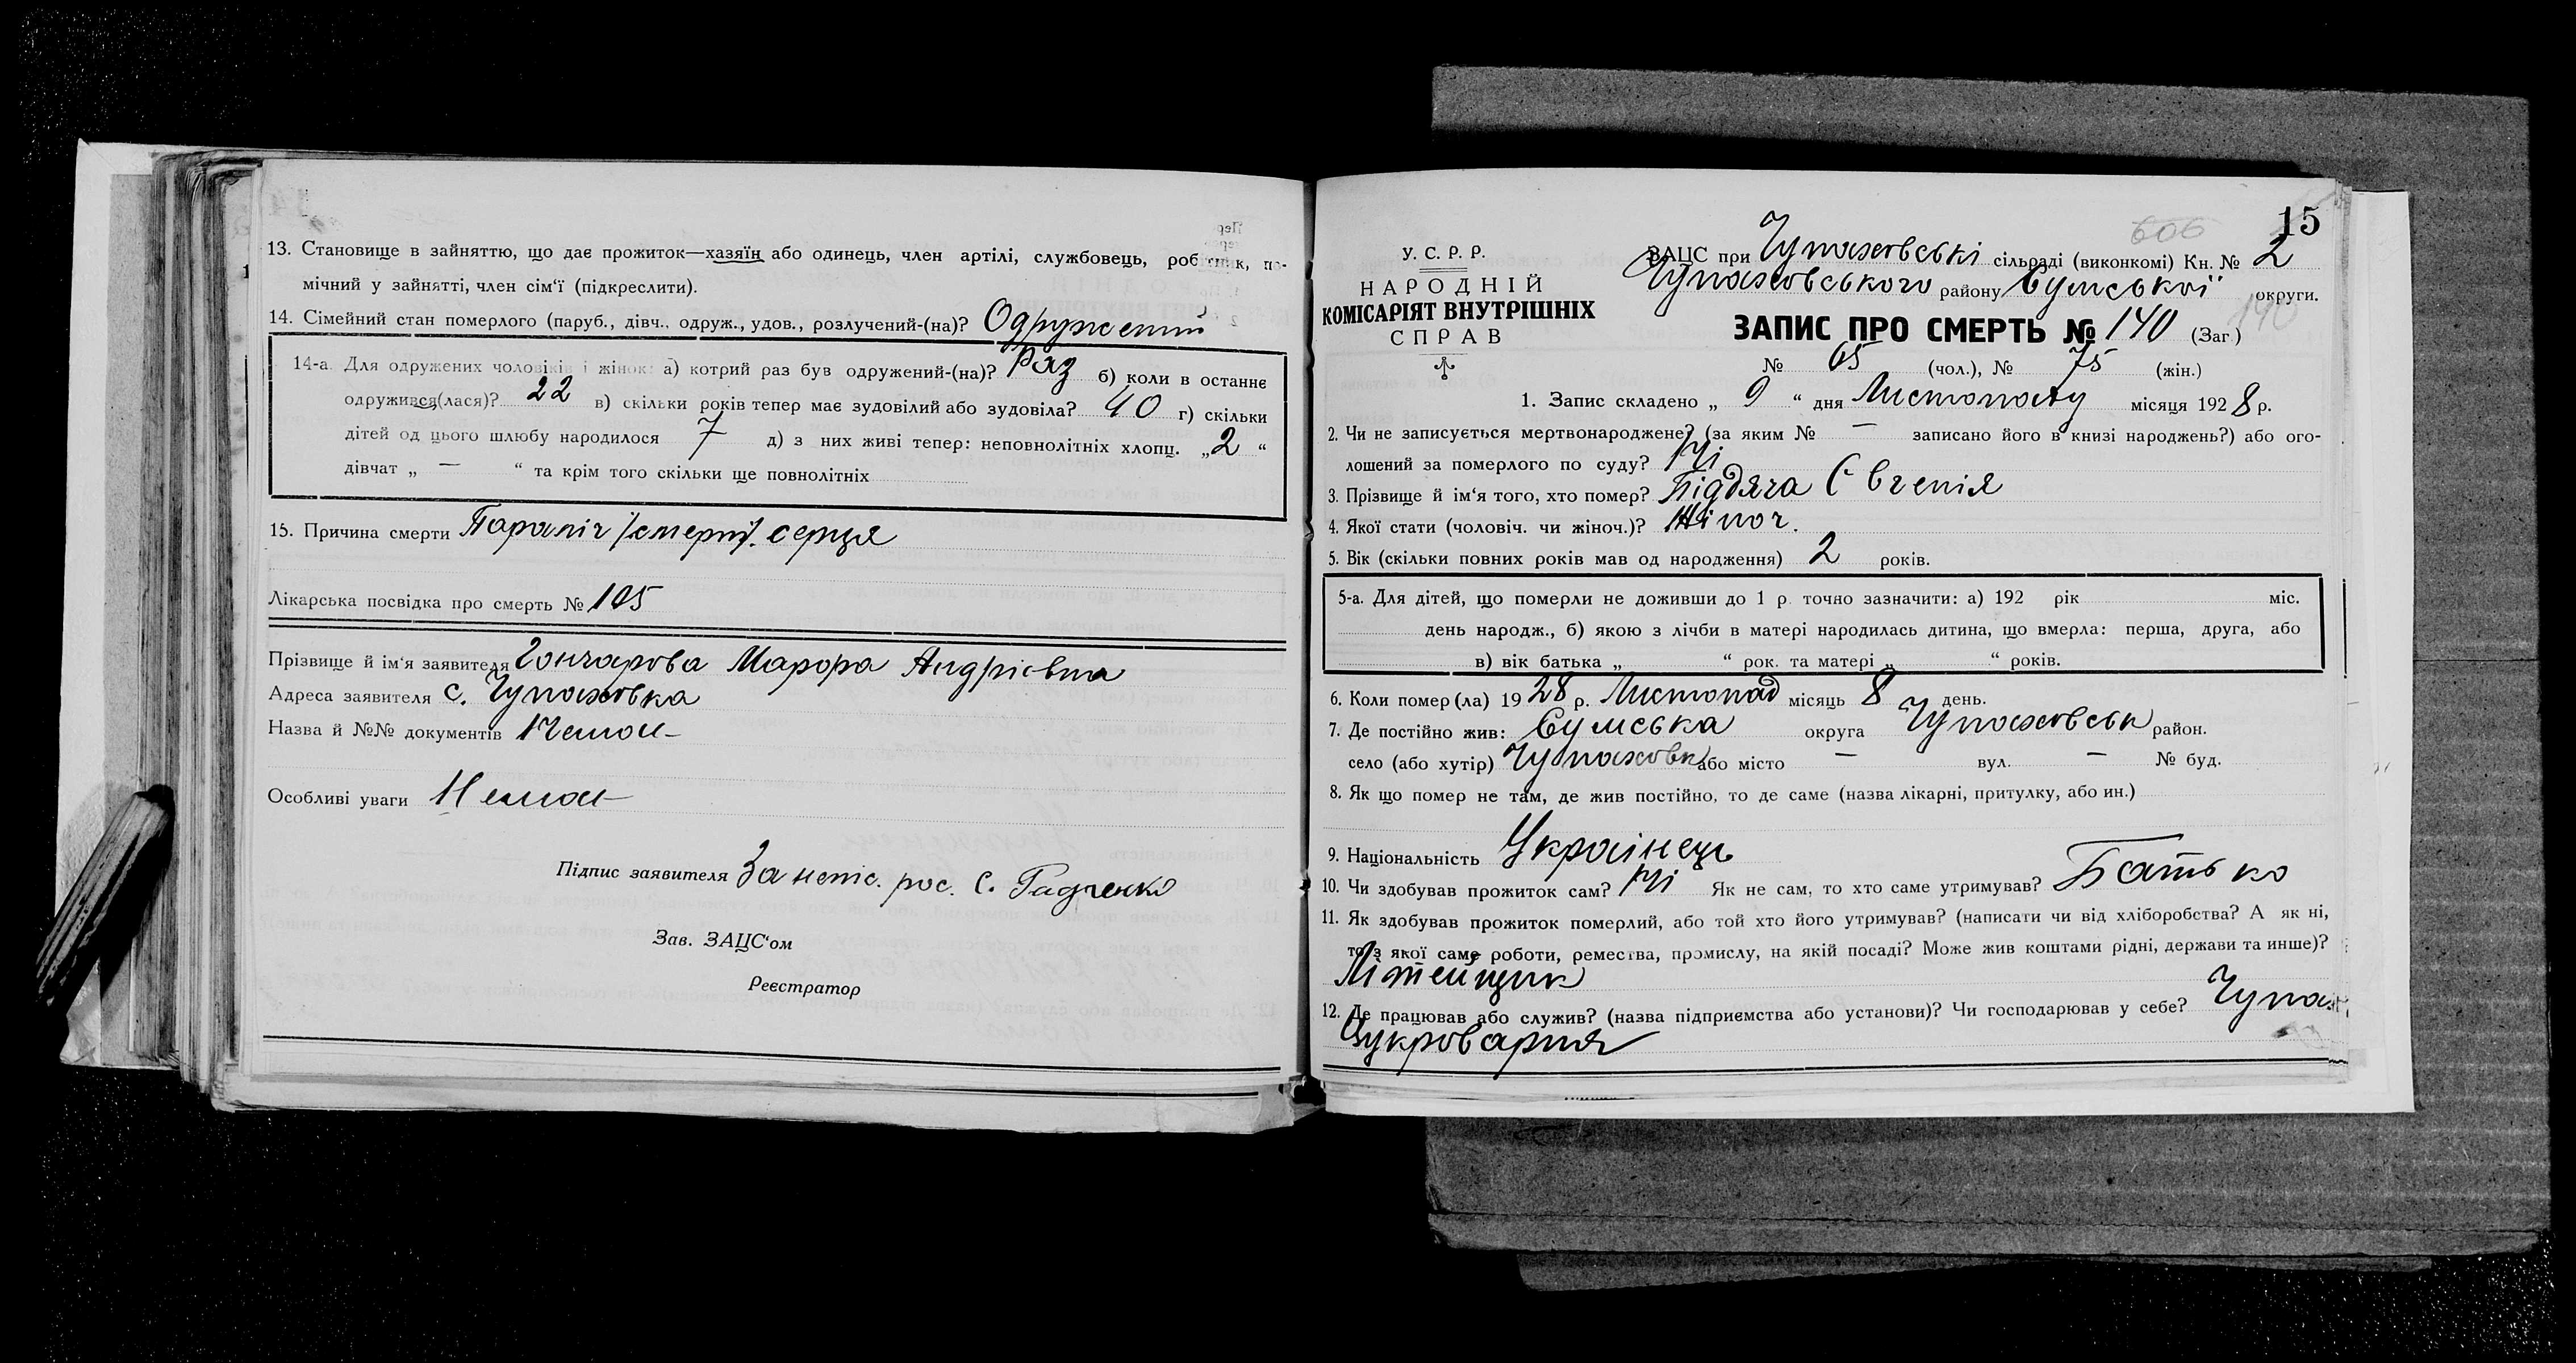 13. Становище в зайняттю, що дає прожиток—хазяїн або одинець, член артілі, службовець, робітник, по-
мічний у зайнятті, член сім'ї (підкреслити).
14. Сімейний стан померлого (паруб., дівч., одруж., удов., розлучений-(на)? Одружений
14-а. Для одружених чоловіків і жінок: а) котрий раз був одружений-(на)? Раз б) коли в останнє
одружився(лася)? 22 в) скільки років тепер має зудовілий або зудовіла? 40 г) скільки
дітей од цього шлюбу народилося 7 д) з них живі тепер: неповнолітніх хлопц. „2“
дівчат „ — “ та крім того скільки ще повнолітніх
15. Причина смерти Параліч /смерти/. серця
Лікарська посвідка про смерть № 105
Прізвище й ім'я заявителя Гончарова Марфра Андрієвна
Адреса заявителя с. Чупаховка
Назва й №№ документів Немає
Особливі уваги Немає
Підпис заявителя За непис. рос. С. Гадченко
Зав. ЗАЦС'ом
Реєстратор
15
606
У. С. Р. Р.
НАРОДНІЙ
КОМІСАРІЯТ ВНУТРІШНІХ
СПРАВ
ЗАЦС при Чупаховські сільраді (виконкомі) Кн. № 2
Чупаховського району Сумської округи.
190
ЗАПИС ПРО СМЕРТЬ № 140 (Заг.)
№ 65 (чол.), № 75 (жін.)
1. Запис складено „ 9 “ дня Листопаду місяця 1928 р.
2. Чи не записується мертвонароджене? (за яким № — записано його в книзі народжень?) або ого-
лошений за померлого по суду? Ні
3. Прізвище й ім'я того, хто помер? Піддяча Євгенія
4. Якої стати (чоловіч. чи жіноч.)? Жіноч.
5. Вік (скільки повних років мав од народження) 2 років.
5-а. Для дітей, що померли не доживши до 1 р. точно зазначити: а) 192 рік міс.
день народж., б) якою з лічби в матері народилась дитина, що вмерла: перша, друга, або
в) вік батька „ “ рок. та матері „ “ років.
6. Коли помер(ла) 1928 р. Листопад місяць 8 день.
7. Де постійно жив: Сумська округа Чупаховськ район.
село (або хутір) Чупаховк або місто — вул. — № буд.
8. Як що помер не там, де жив постійно, то де саме (назва лікарні, притулку, або ин.)
9. Національність Українець
10. Чи здобував прожиток сам? Ні Як не сам, то хто саме утримував? Батько
11. Як здобував прожиток померлий, або той хто його утримував? (написати чи від хліборобства? А як ні,
то з якої саме роботи, ремества, промислу, на якій посаді? Може жив коштами рідні, держави та инше)?
Літейщик
12. Де працював або служив? (назва підприємства або установи)? Чи господарював у себе? Чупах
Цукроварня